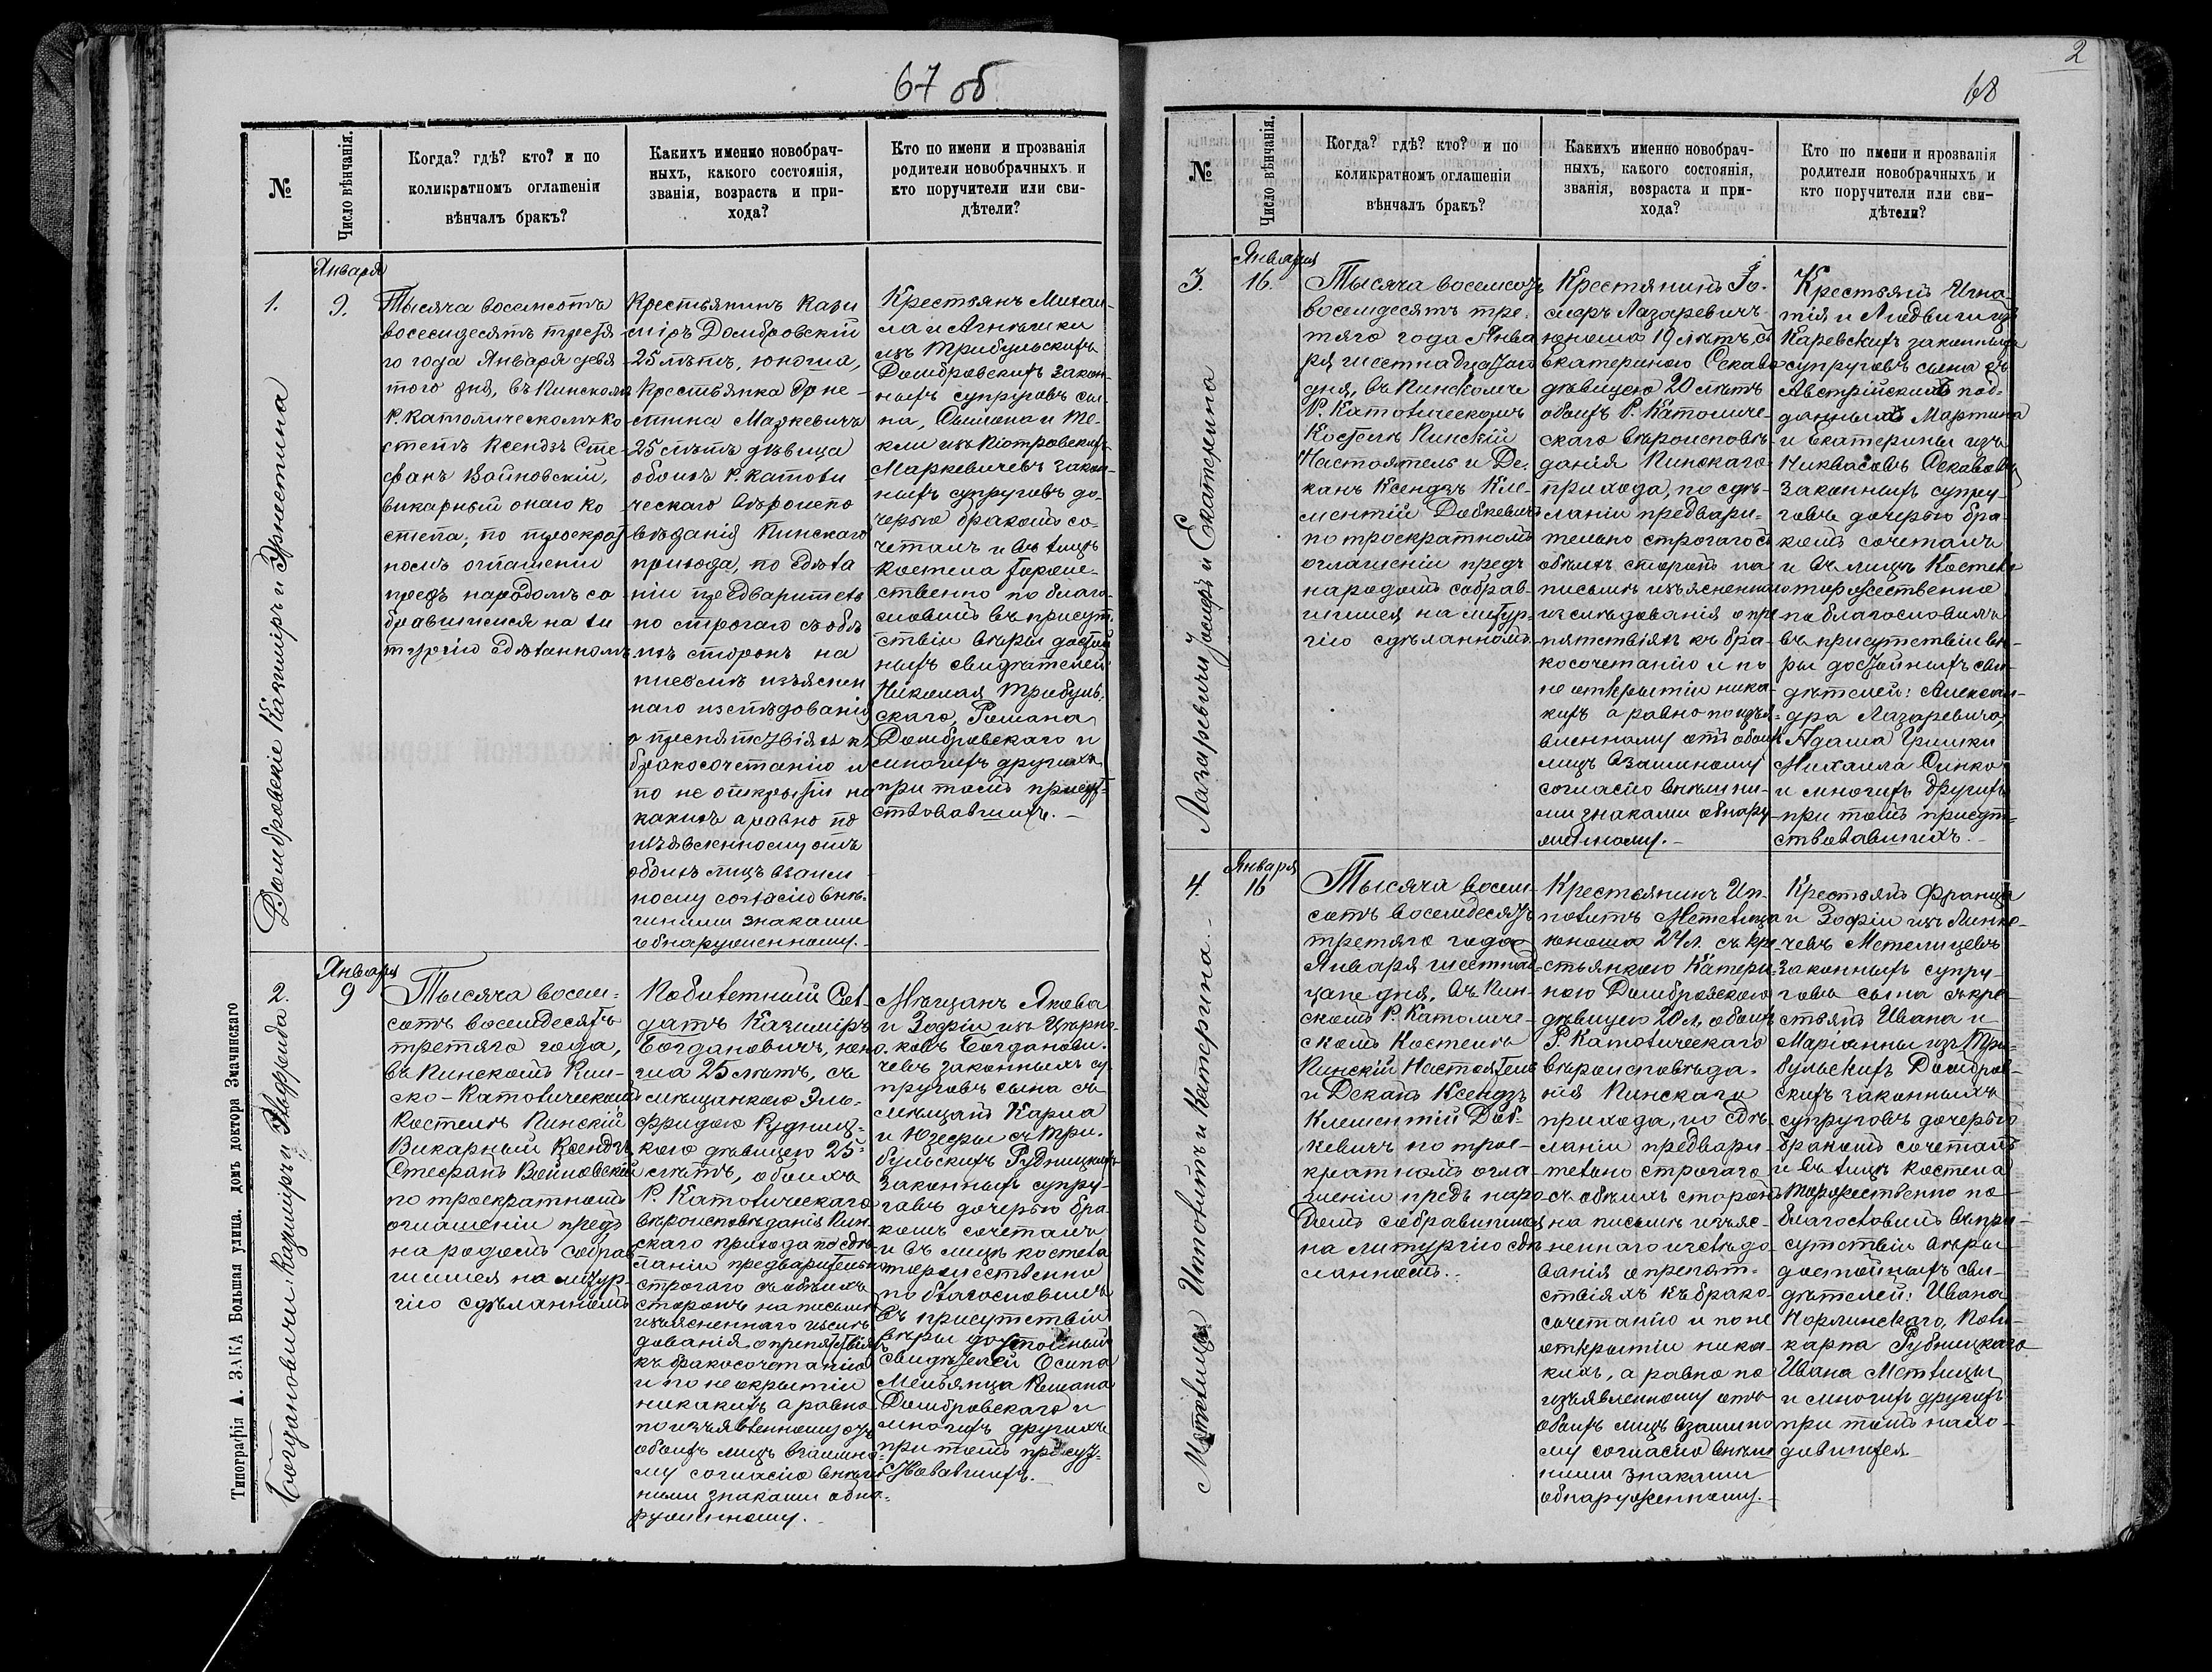 67 об
№
Число вѣнчанія.
Когда? гдѣ? кто? и по
коликратномъ оглашеніи
вѣнчалъ бракъ?
Какихъ именно новобрач-
ныхъ, какого состоянія,
званія, возраста и при-
хода?
Кто по имени и прозванія
родители новобрачныхъ и
кто поручители или сви-
дѣтели?
Типографія А. ЗАКА Большая улица. домъ доктора Змачинскаго
1.
Домбровскіе Казиміръ и Эрнестина
Января
9.
Тысяча восемсотъ
восемдесятъ третья
го года Января девя
того дня, въ Пинскомъ
Р. Католическомъ Ко
стелѣ Ксендзъ Сте
фанъ Войновскій,
викарный онаго ко
стела, по троекрат
номъ оглашеніи
предъ народомъ со
бравшимся на ли
тургію сдѣланномъ
Крестьянинъ Кази
міръ Домбровскій
25 лѣтъ, юноша,
Крестьянка Эрне-
стина Маркевичъ
25 лѣтъ дѣвица
обоихъ Р. Католи
ческаго вѣроиспо
вѣданія Пинскаго
прихода, по сдѣла
ніи предваритель
но строгаго съ обѣ
ихъ сторонъ на
письмѣ изъяснен
наго изслѣдованія
о препятствіяхъ къ
бракосочетанію и
по не открытіи ни
какихъ а равно по
изъявленному отъ
обоихъ лицъ взаим
ному согласію внѣ-
шними знаками
обнаруженному.
Крестьянъ Михаи-
ла и Агнешки
изъ Трибульскихъ
Домбровскихъ закон-
ныхъ супруговъ сы-
на, Сымона и Те-
кли изъ Піотровскихъ
Маркевичевъ закон-
ныхъ супруговъ до-
черью бракомъ со-
четалъ и въ лицѣ
костела торже-
ственно по благо-
словилъ въ присут-
ствіи вѣры достой
ныхъ свидѣтелей
Николая Трибуль-
скаго, Романа
Домбровскаго и
многихъ другихъ
при томъ присут-
ствовавшихъ.
2.
Богдановичи Казиміръ и Эльфрида
Января
9
Тысяча восем-
сотъ восемдесятъ
третяго года,
въ Пинскомъ Рим-
ско-Католическомъ
Костелѣ Пинскій
Викарный Ксендзъ
Стефанъ Войновскій
по троекратномъ
оглашеніи предъ
народомъ собрав
шимся на литур-
гію сдѣланномъ
Побилетный Сол-
датъ Казиміръ
Богдановичъ, юно
ша 25 лѣтъ, съ
мѣщанкою Эль-
фридою Рудниц-
кою дѣвицею 25-
лѣтъ, обоихъ
Р. Католическаго
вѣроисповѣданія Пин-
скаго прихода по сдѣ-
ланіи предварительно
строгаго съ обѣихъ
сторонъ на письмѣ
изъясненнаго изслѣ
дованія о препятствіяхъ
къ бракосочетанію
и по не окрытіи
никакихъ а равно
по изъявленному отъ
обоихъ лицъ взаимно-
му согласію внѣш
ними знаками обна-
руженному.
Мѣщанъ Якова
и Зофіи изъ
Богданови-
чевъ законныхъ су
пруговъ сына съ
мѣщанъ Карла
и Юзефы съ Три-
бульскихъ Рудницкихъ
законныхъ супру-
говъ дочерью бра-
комъ сочеталъ
и въ лицѣ костела
торжественно
по благословилъ
въ присутствіи
вѣры достойныхъ
свидѣтелей Осипа
Романа
Домбровскаго и
многихъ другихъ
при томъ присут-
ствовавшихъ.
2
68
№
Число вѣнчанія.
Когда? гдѣ? кто? и по
коликратномъ оглашеніи
вѣнчалъ бракъ?
Какихъ именно новобрач-
ныхъ, какого состоянія,
званія, возраста и при-
хода?
Кто по имени и прозванія
родители новобрачныхъ и
кто поручители или сви-
дѣтели?
3.
Лазаревичи Іосифъ и Екатерина
Января
16.
Тысяча восемсотъ
восемдесятъ тре-
тяго года Янва
ря шестнадцатаго
дня, въ Пинскомъ
Р. Католическомъ
Костелѣ Пинскій
Настоятель и Де-
канъ Ксендзъ Кле-
ментій Добкевичъ
по троекратномъ
оглашеніи предъ
народомъ собрав-
шимся на литур-
гію сдѣланномъ.
Крестянинъ Іо-
сифъ Лазаревичъ
юноша 19 лѣтъ, съ
Екатериною Секаво
дѣвицею 20 лѣтъ
обоихъ Р. Католиче-
скаго вѣроисповѣ-
данія Пинскаго
прихода, по сдѣ-
ланіи предвари-
тельно строгаго съ
обѣихъ сторонъ на
письмѣ изъясненнаго
изслѣдованія о пре
пятствіяхъ къ бра-
косочетанію и по
не открытіи ника-
кихъ а равно по изъя-
вленному отъ обоихъ
лицъ взаимному
согласію внѣшни-
ми знаками обнару-
женному.
Крестьянъ Игна-
тія и Людвиги изъ
Каревскихъ законныхъ
супруговъ сына съ
Австрійскихъ под-
данныхъ Мартина
и Екатерины изъ
законныхъ супру-
говъ дочерью бра-
комъ сочеталъ
и въ лицѣ Костела
торжественно
по благословилъ
въ присутствіи вѣ-
ры достойныхъ сви-
дѣтелей: Алексан-
дра Лазаревича,
Адама Гришки
Михаила Синко
и многихъ другихъ
при томъ присут-
ствовавшихъ.
4.
Метелица Ипполитъ и Катерина.
Января
16
Тысяча восем-
сотъ восемдесятъ
третяго года
Января шестнад-
цаго дня, въ Пин-
скомъ Р. Католиче-
скомъ Костелѣ
Пинскій Настоятель
и Деканъ Ксендзъ
Клементій Доб-
кевичъ по трое-
кратномъ огла-
шеніи предъ наро
домъ собравшимся
на литургію сдѣ
ланномъ.
Крестьянинъ Ип-
политъ Метелица
юноша 24 л. съ кре-
стьянкою Катери-
ною Домбровскою
дѣвицею 20 л. обоихъ
Р. Католическаго
вѣроисповѣда-
нія Пинскаго
прихода, по сдѣ-
ланіи предвари-
тельно строгаго
съ обѣихъ сторонъ
на письмѣ изъяс-
неннаго изслѣдо-
ванія о препят-
ствіяхъ къ брако-
сочетанію и по не
открытіи ника-
кихъ, а равно по
изъявленному отъ
обоихъ лицъ взаимно
му согласію внѣш
ними знаками
обнаруженному.
Крестьянъ Франца
и Зофіи изъ Линке-
чевъ Метелицевъ
законныхъ супру-
говъ сына съ кре-
стьянъ Ивана и
Маріанны изъ Три-
бульскихъ Домбров-
скихъ законныхъ
супруговъ дочерью
бракомъ сочеталъ
и въ лицѣ костела
торжественно по-
благословилъ въ при-
сутствіи вѣры
достойныхъ сви-
дѣтелей: Ивана
Корлинскаго, Поли-
карпа Рудницкаго
Ивана Метлицы
и многихъ другихъ
при томъ нахо-
дившихся